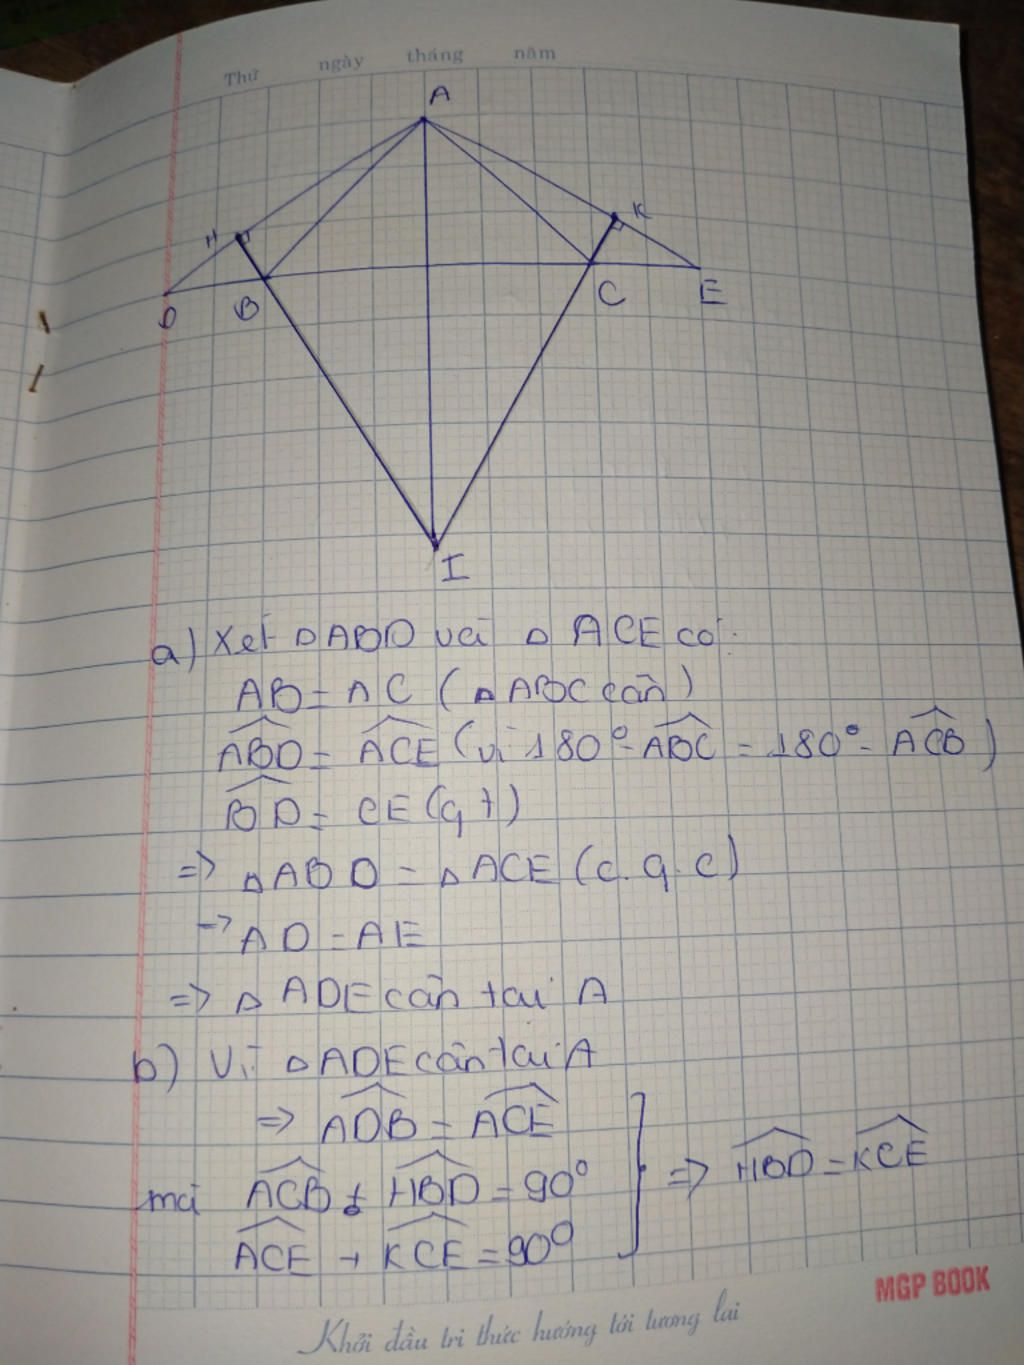 Thứ ngày tháng năm
A
H
K
D
B
C
E
I
a) Xét △ABD và △ ACE có:
AB = AC (△ABC cân)
ABD = ACE (vì 180° - ABC = 180° - ACB)
BD = CE (gt)
=> △ABD = △ACE (c.g.c)
=> AD = AE
=> △ ADE cân tại A
b) Vì △ADE cân tại A
=> ADB = ACE
mà ACB + HBD = 90° => HBD = KCE
ACE + KCE = 90°
MGP BOOK
Khởi đầu tri thức hướng tới tương lai